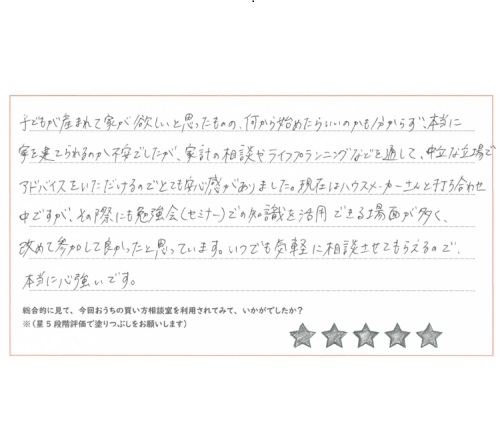 子どもが産まれて家が欲しいと思ったものの、何から始めたらいいのかも分からず、本当に
家を建てられるのか不安でしたが、家計の相談やライフプランニングなどを通して、中立な立場で
アドバイスをいただけるのでとても安心感がありました。現在はハウスメーカーさんと打ち合わせ
中ですが、その際にも勉強会(セミナー)での知識を活用できる場面が多く、
改めて参加して良かったと思っています。いつでも気軽に相談させてもらえるので、
本当に心強いです。
総合的に見て、今回おうちの買い方相談室を利用されてみて、いかがでしたか?
※(星5段階評価で塗りつぶしをお願いします)